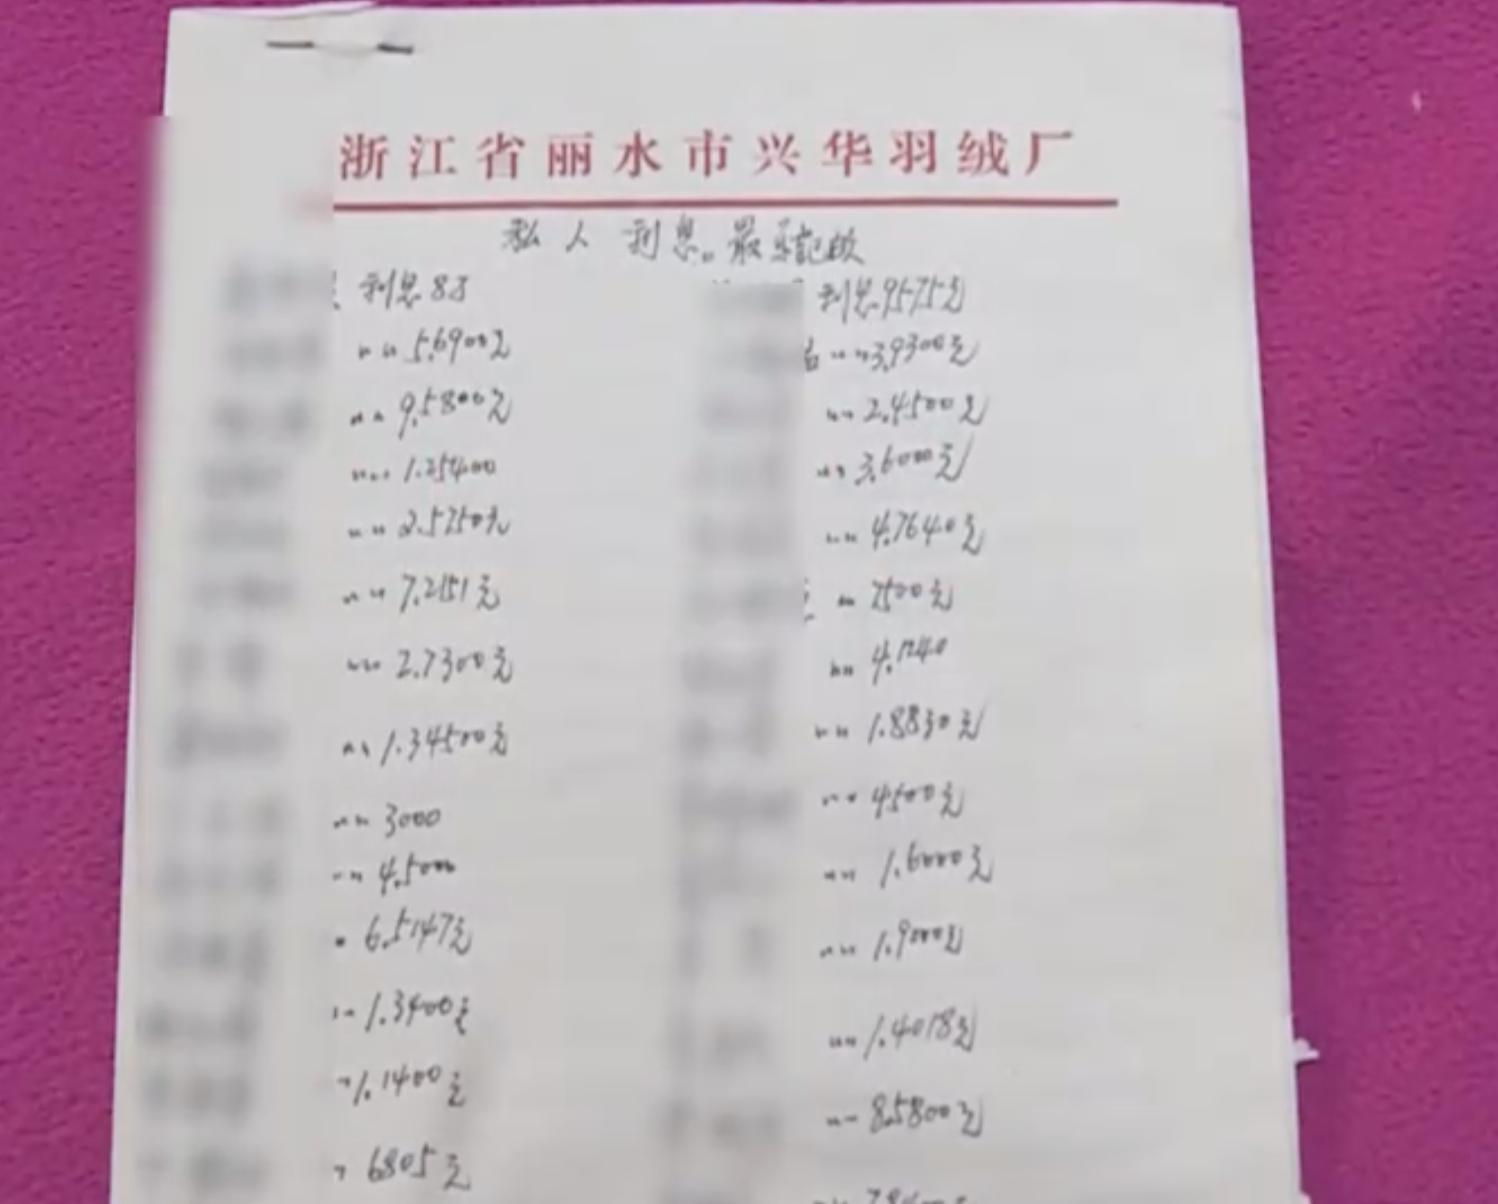 浙江省丽水市兴华羽绒厂
私人利息。最
利息88
〃〃5.6900元
〃〃9.5800元
〃〃1.25400
〃〃2.5250元
〃〃7.2151元
〃〃2.7300元
〃〃1.34500元
〃〃3000
〃〃4.5000
〃6.5147元
〃1.3400元
〃1.1400元
〃6805元
利息9575元
〃〃3.9300元
〃〃2.4500元
〃〃3.6000元
〃〃4.7640元
〃7500元
〃〃4.1240
〃〃1.8830元
〃〃4500元
〃〃1.6000元
〃〃1.9000元
〃〃1.4018元
〃〃8.5800元